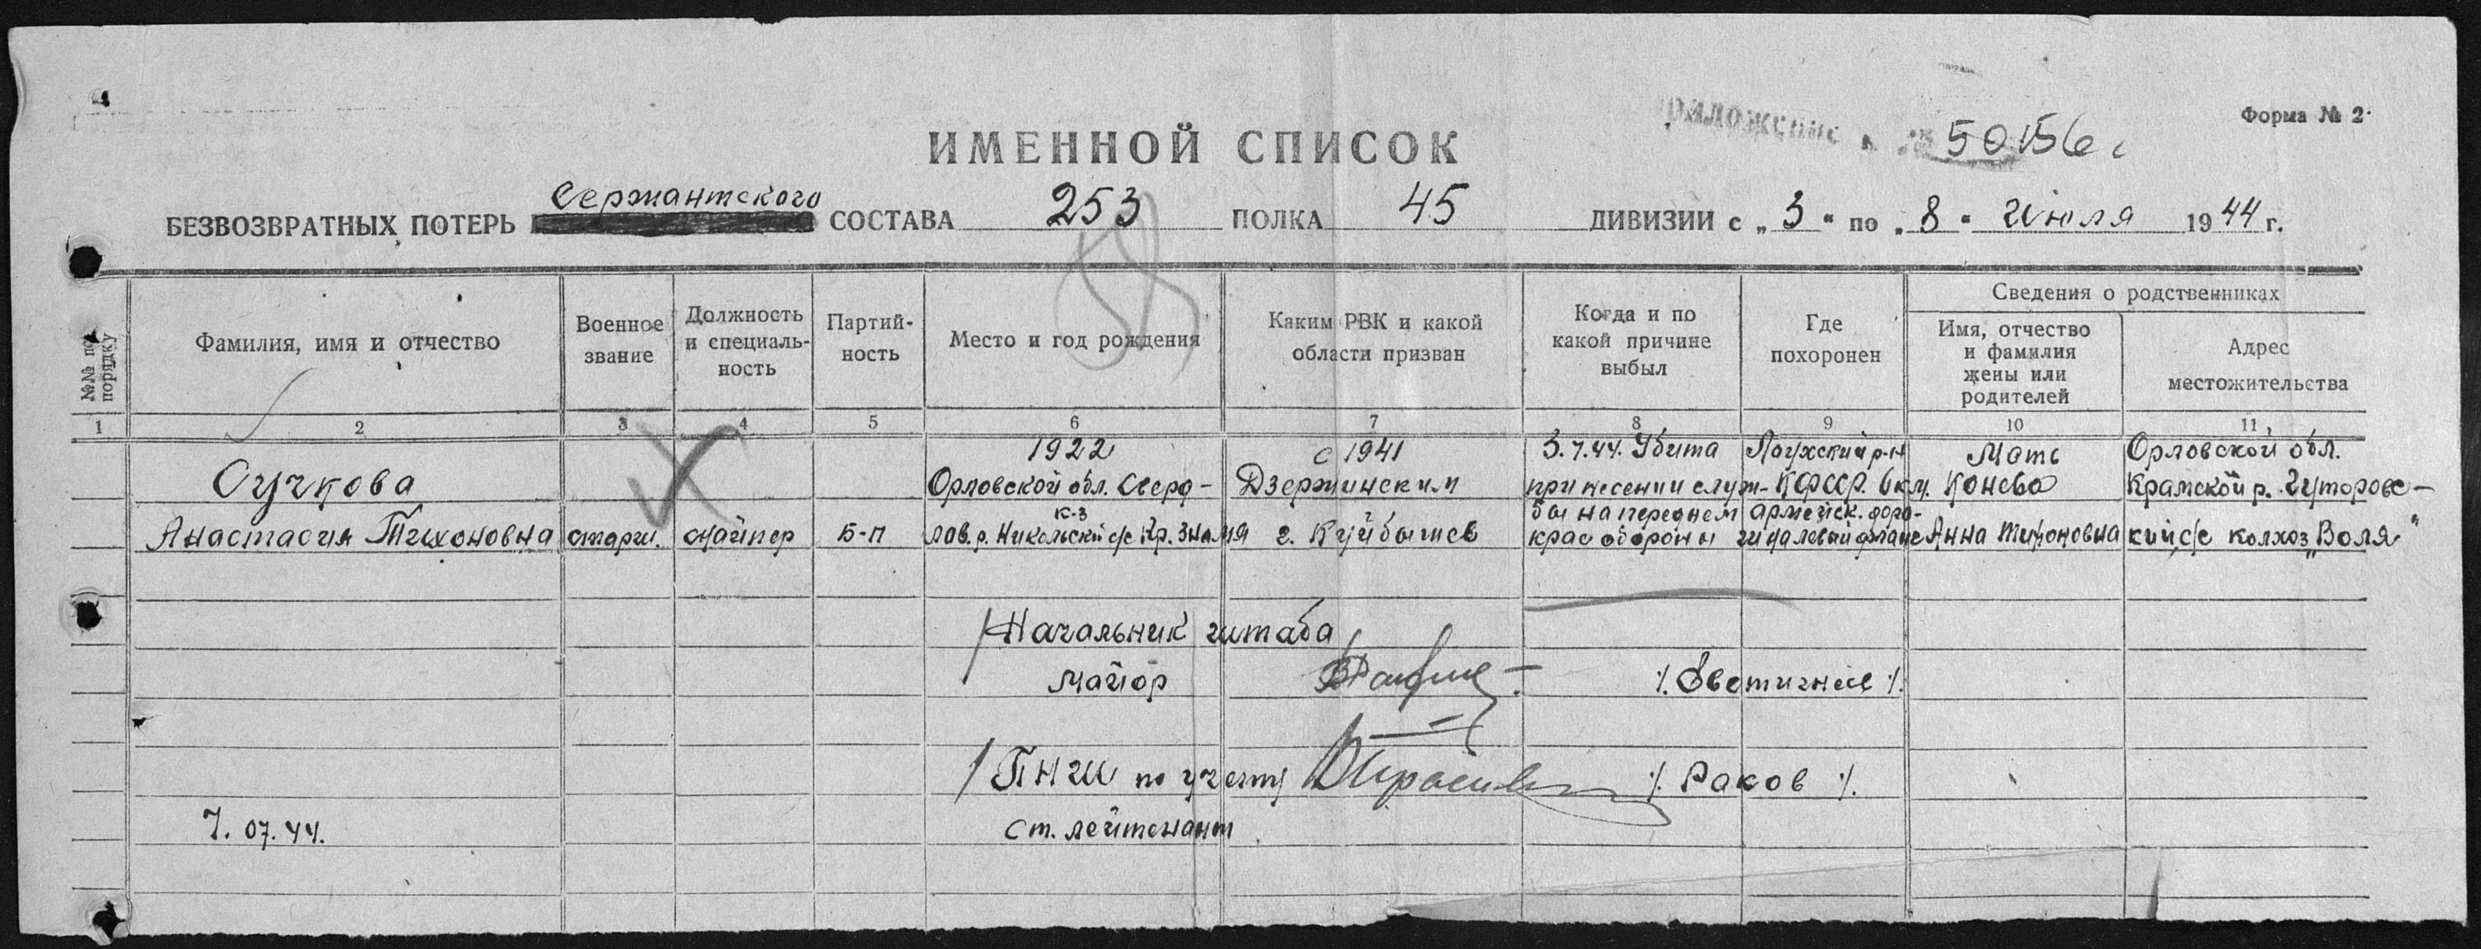 Форма № 2
50156с
ИМЕННОЙ СПИСОК
Сержантского
БЕЗВОЗВРАТНЫХ ПОТЕРЬ СОСТАВА 253 ПОЛКА 45 ДИВИЗИИ с „ 3 " по „ 8 " Июля 1944 г.
№№ по порядку
Фамилия, имя и отчество
Военное звание
Должность и специаль-ность
Партий-ность
Место и год рождения
Каким РВК и какой области призван
Когда и по какой причине выбыл
Где похоронен
Сведения о родственниках
Имя, отчество и фамилия жены или родителей
Адрес местожительства
1 2 3 4 5 6 7 8 9 10 11
1922 с 1941 3.7.44. Убита Лоухский р-н Мать Орловской обл.
Сучкова Орловской обл. Сверд- Дзержинским при несении служ- КФССР. 6 км. Конева Крамской р. Гуторовс-
к-з бы на переднем армейск. доро-
Анастасия Тихоновна старш. снайпер Б-П лов. р. Никольский с/с Кр. Знамя г. Куйбышев крае обороны Анна Тихоновна кий с/с колхоз „Воля"
Начальник штаба
Майор
ПНШ по учету /. Раков /.
7.07.44. ст. лейтенант